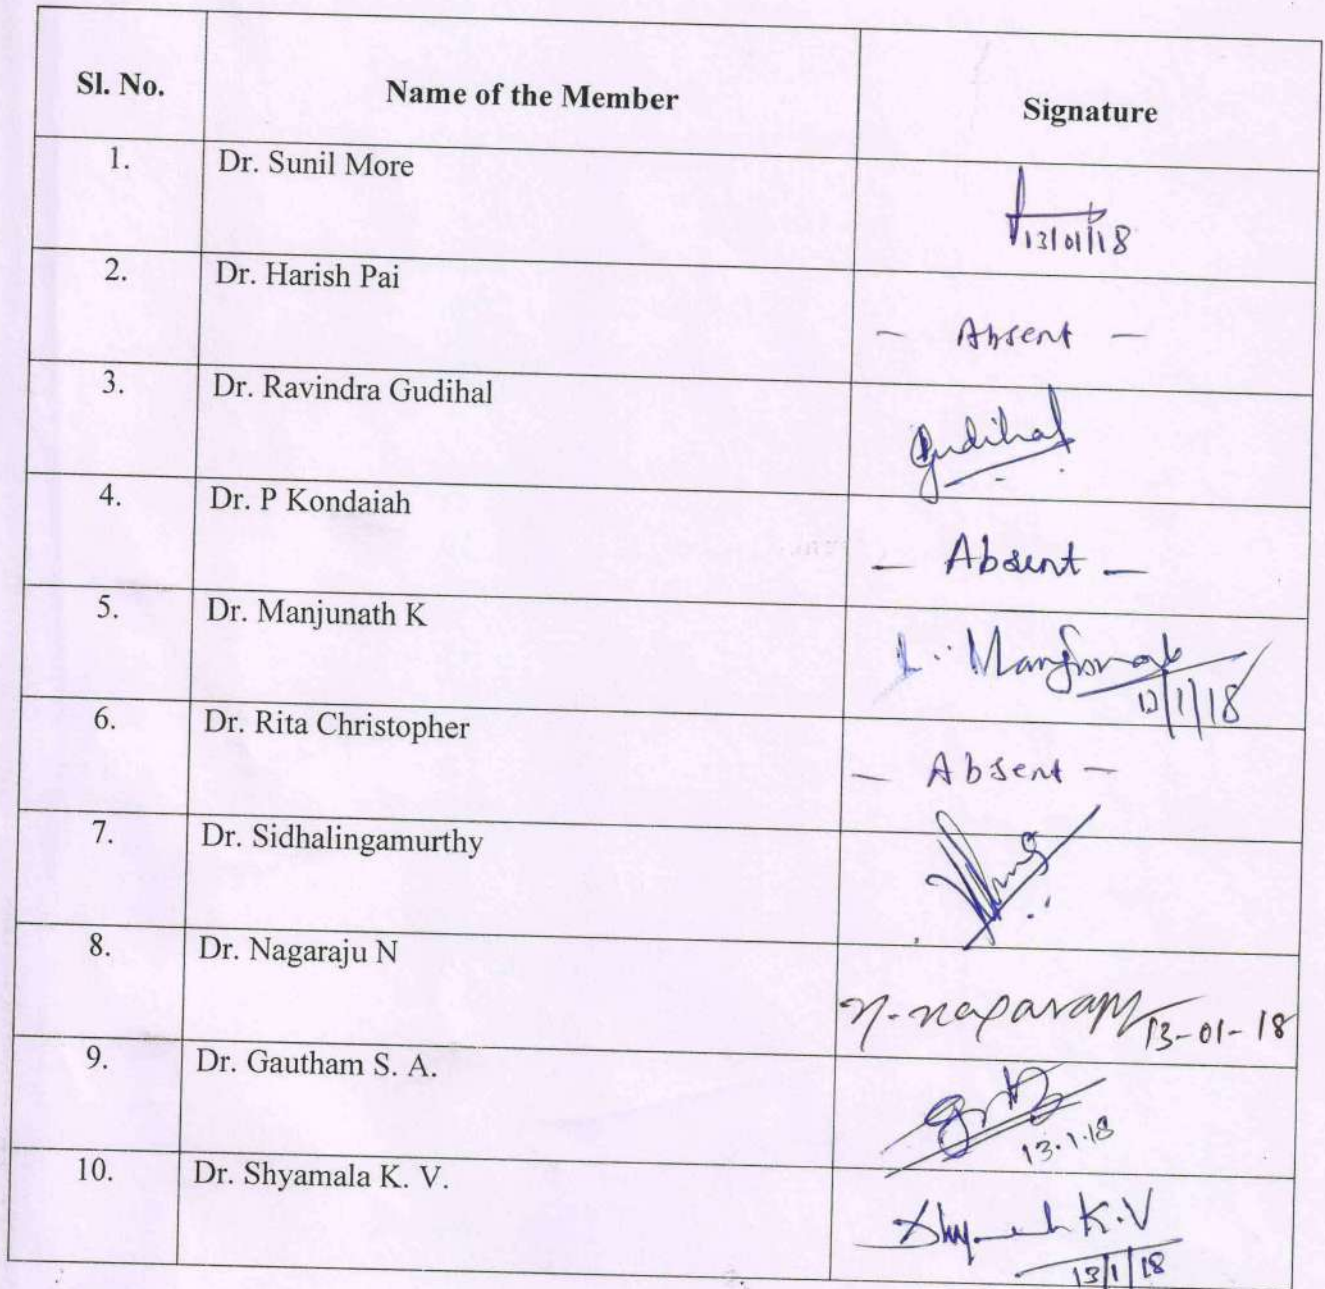 Sl. No. Name of the Member Signature
1. Dr. Sunil More
13/01/18
2. Dr. Harish Pai
- Absent -
3. Dr. Ravindra Gudihal
Gudihal
4. Dr. P Kondaiah
- Absent -
5. Dr. Manjunath K
Manjunath
13/1/18
6. Dr. Rita Christopher
- Absent -
7. Dr. Sidhalingamurthy
8. Dr. Nagaraju N
N. Nagaraju 13-01-18
9. Dr. Gautham S. A.
13.1.18
10. Dr. Shyamala K. V.
K.V
13/1/18